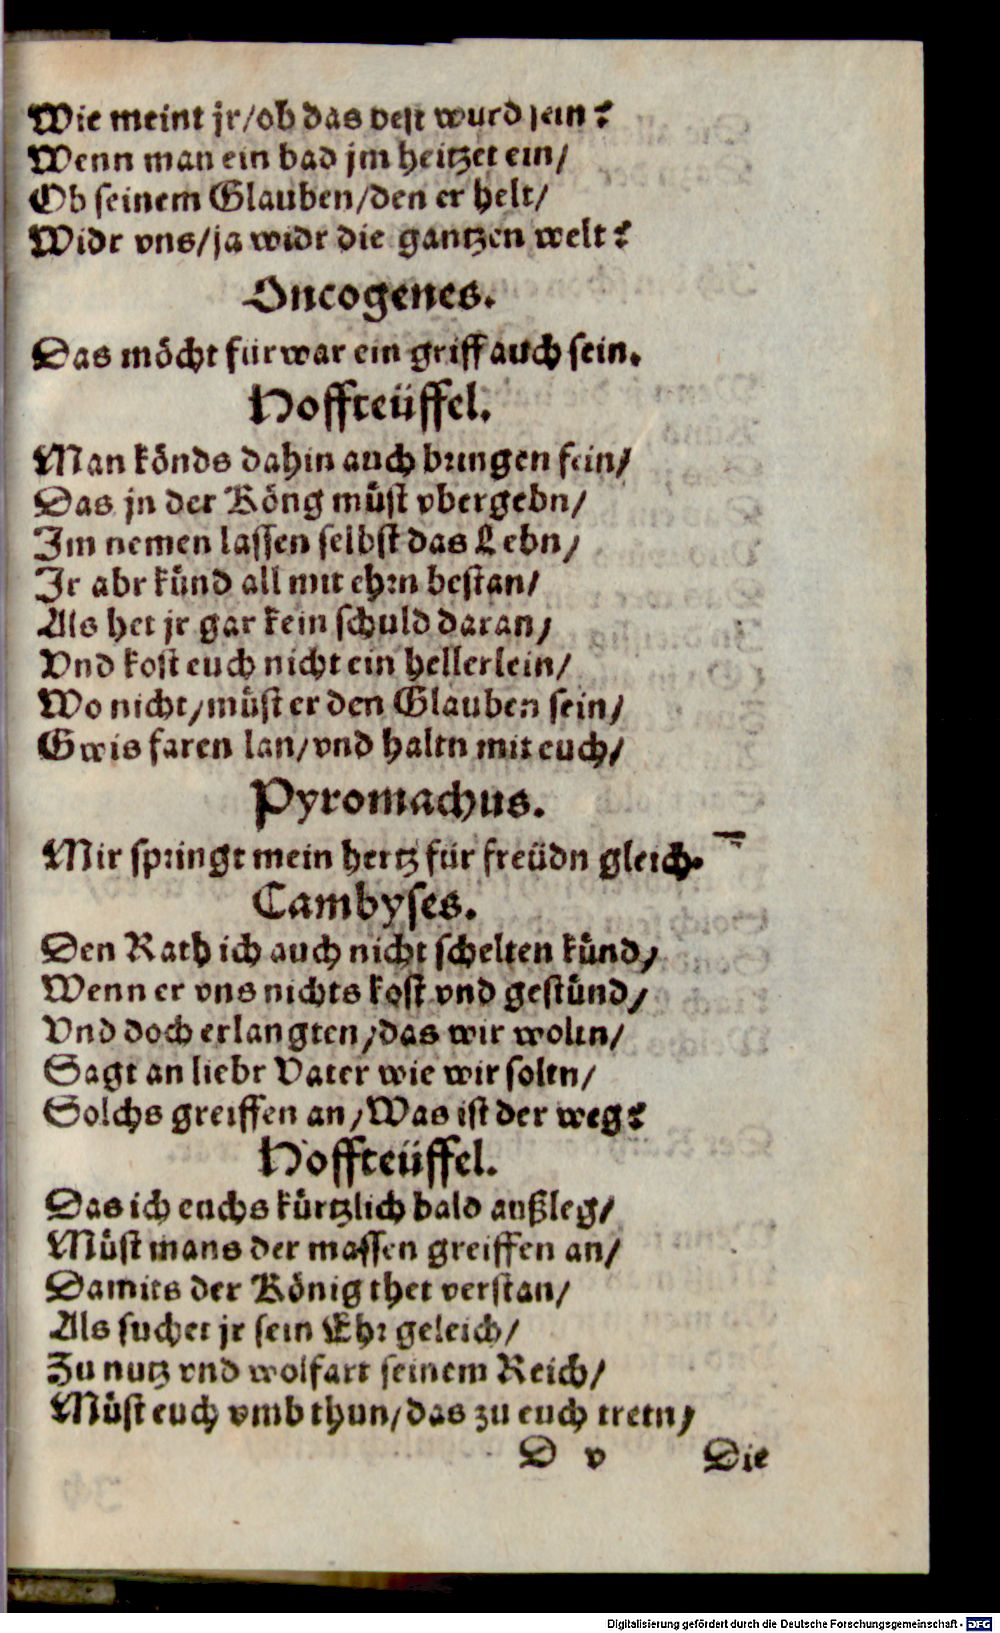 Wie meint jr/ob das vest wurd sein?
Wenn man ein bad jm heitzet ein/
Ob seinem Glauben/den er helt/
Widr vns/ja widr die gantzen welt?
Oncogenes.
Das möcht fürwar ein griff auch sein.
Hoffteüffel.
Man könds dahin auch bringen fein/
Das jn der Köng müst vbergebn/
Im nemen lassen selbst das Lebn/
Ir abr künd all mit ehrn bestan/
Als het jr gar kein schuld daran/
Vnd kost euch nicht ein hellerlein/
Wo nicht/müst er den Glauben sein/
Gwis faren lan/vnd haltn mit euch/
Pyromachus.
Mir springt mein hertz für freüdn gleich.
Cambyses.
Den Rath ich auch nicht schelten künd/
Wenn er vns nichts kost vnd gestünd/
Vnd doch erlangten/das wir woltn/
Sagt an liebr Vater wie wir soltn/
Solchs greiffen an/Was ist der weg?
Hoffteüffel.
Das ich euchs kürtzlich bald außleg/
Müst mans der massen greiffen an/
Damits der König thet verstan/
Als suchet jr sein Ehr geleich/
Zu nutz vnd wolfart seinem Reich/
Müst euch vmb thun/das zu euch tretn/
D v Die
Digitalisierung gefördert durch die Deutsche Forschungsgemeinschaft - DFG